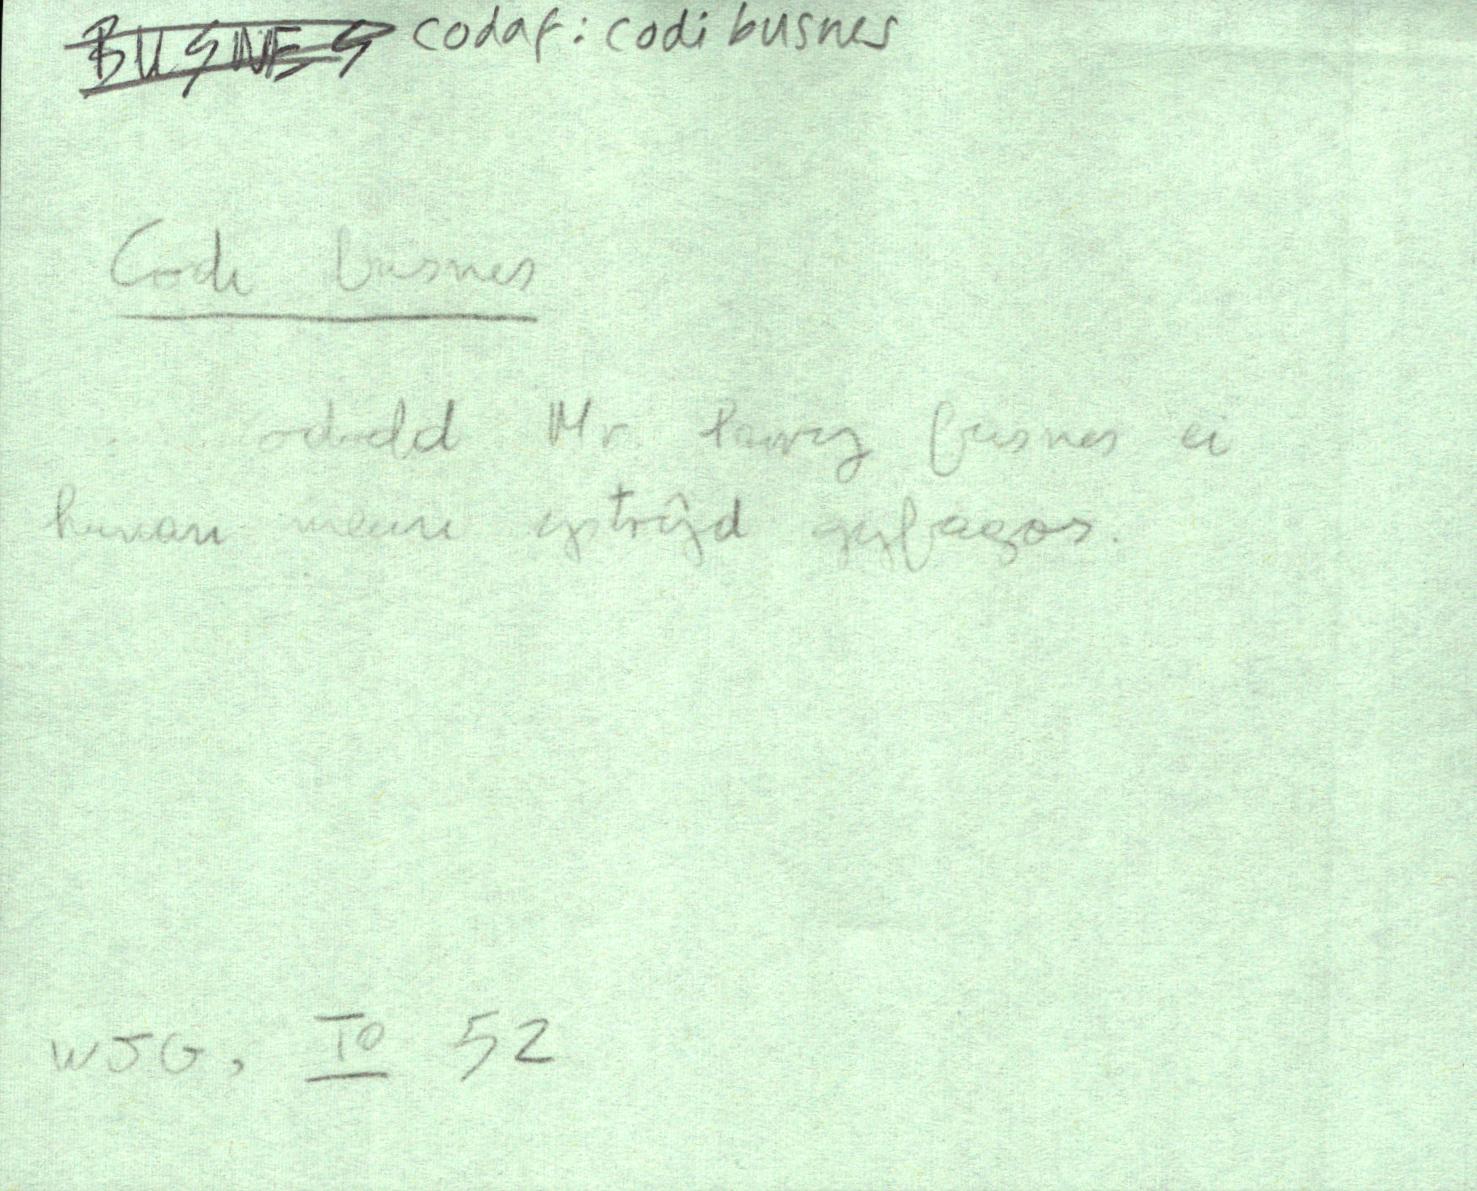 BUSNES codaf: codi busnes
Codi busnes
ododd Mr. Parry fusnes ei
hunan mewn ystryd gyfagos.
WJG, To 52